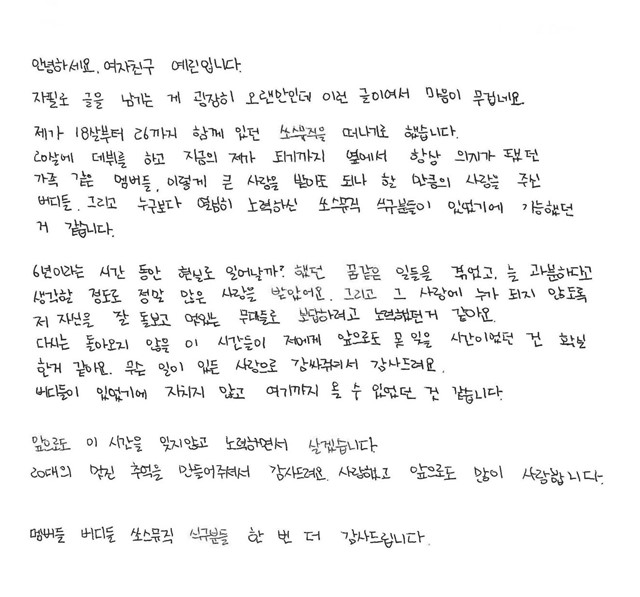 안녕하세요. 여자친구 예린입니다.
자필로 글을 남기는 게 굉장히 오랜만인데 이런 글이여서 마음이 무겁네요.
제가 18살부터 26까지 함께 있던 쏘스뮤직을 떠나기로 했습니다.
20살에 데뷔를 하고 지금의 제가 되기까지 옆에서 항상 의지가 돼줬던
가족 같은 멤버들, 이렇게 큰 사랑을 받아도 되나 할 만큼의 사랑을 주신
버디들. 그리고 누구보다 열심히 노력하신 쏘스뮤직 식구분들이 있었기에 가능했던
거 같습니다.
6년이라는 시간 동안 현실로 일어날까? 했던 꿈같은 일들을 겪었고, 늘 과분하다고
생각할 정도로 정말 많은 사랑을 받았어요. 그리고 그 사랑에 누가 되지 않도록
저 자신을 잘 돌보고 멋있는 무대들로 보답하려고 노력했던거 같아요.
다시는 돌아오지 않을 이 시간들이 저에게 앞으로도 못 잊을 시간이었던 건 확실
한거 같아요. 무슨 일이 있든 사랑으로 감싸줘서 감사드려요.
버디들이 있었기에 지치지 않고 여기까지 올 수 있었던 것 같습니다.
앞으로도 이 시간을 잊지않고 노력하면서 살겠습니다
20대의 멋진 추억을 만들어주셔서 감사드려요. 사랑했고 앞으로도 많이 사랑합니다.
멤버들 버디들 쏘스뮤직 식구분들 한 번 더 감사드립니다.